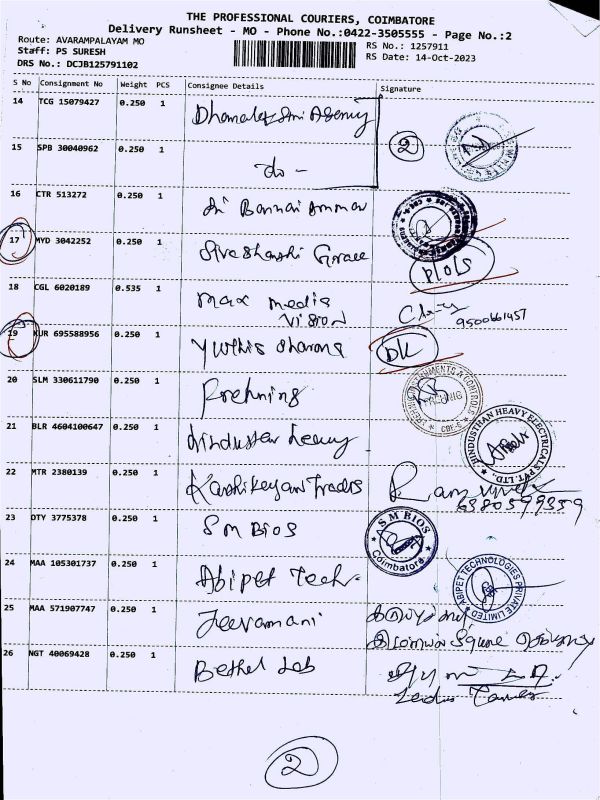 THE PROFESSIONAL COURIERS, COIMBATORE
Delivery Runsheet - MO - Phone No.:0422-3505555 - Page No.:2
Route: AVARAMPALAYAM MO
RS No.: 1257911
Staff: PS SURESH
RS Date: 14-Oct-2023
DRS No.: DCJB125791102
S No Consignment No Weight PCS Consignee Details Signature
14 TCG 15079427 0.250 1
15 SPB 30040962 0.250 1 do - 2
16 CTR 513272 0.250 1 Sri Bannari Amman
17 MYD 3042252 0.250 1
18 CGL 6020189 0.535 1 Max media vision 9500661457
19 KUR 695588956 0.250 1 Yuthis Sharons DK
20 SLM 330611790 0.250 1
21 BLR 4604100647 0.250 1 Hindustan heavy HINDUSTHAN HEAVY ELECTRICALS PVT. LTD.
22 MTR 2380139 0.250 1 Karthikeyan Traders 6380599359
23 OTY 3775378 0.250 1 SM BIOS S M BIOS Coimbatore
24 MAA 105301737 0.250 1 Abipet Tech. ABIPET TECHNOLOGIES PRIVATE LIMITED
25 MAA 571907747 0.250 1 Jeevamani
26 NGT 40069428 0.250 1 Bethel Lab
2